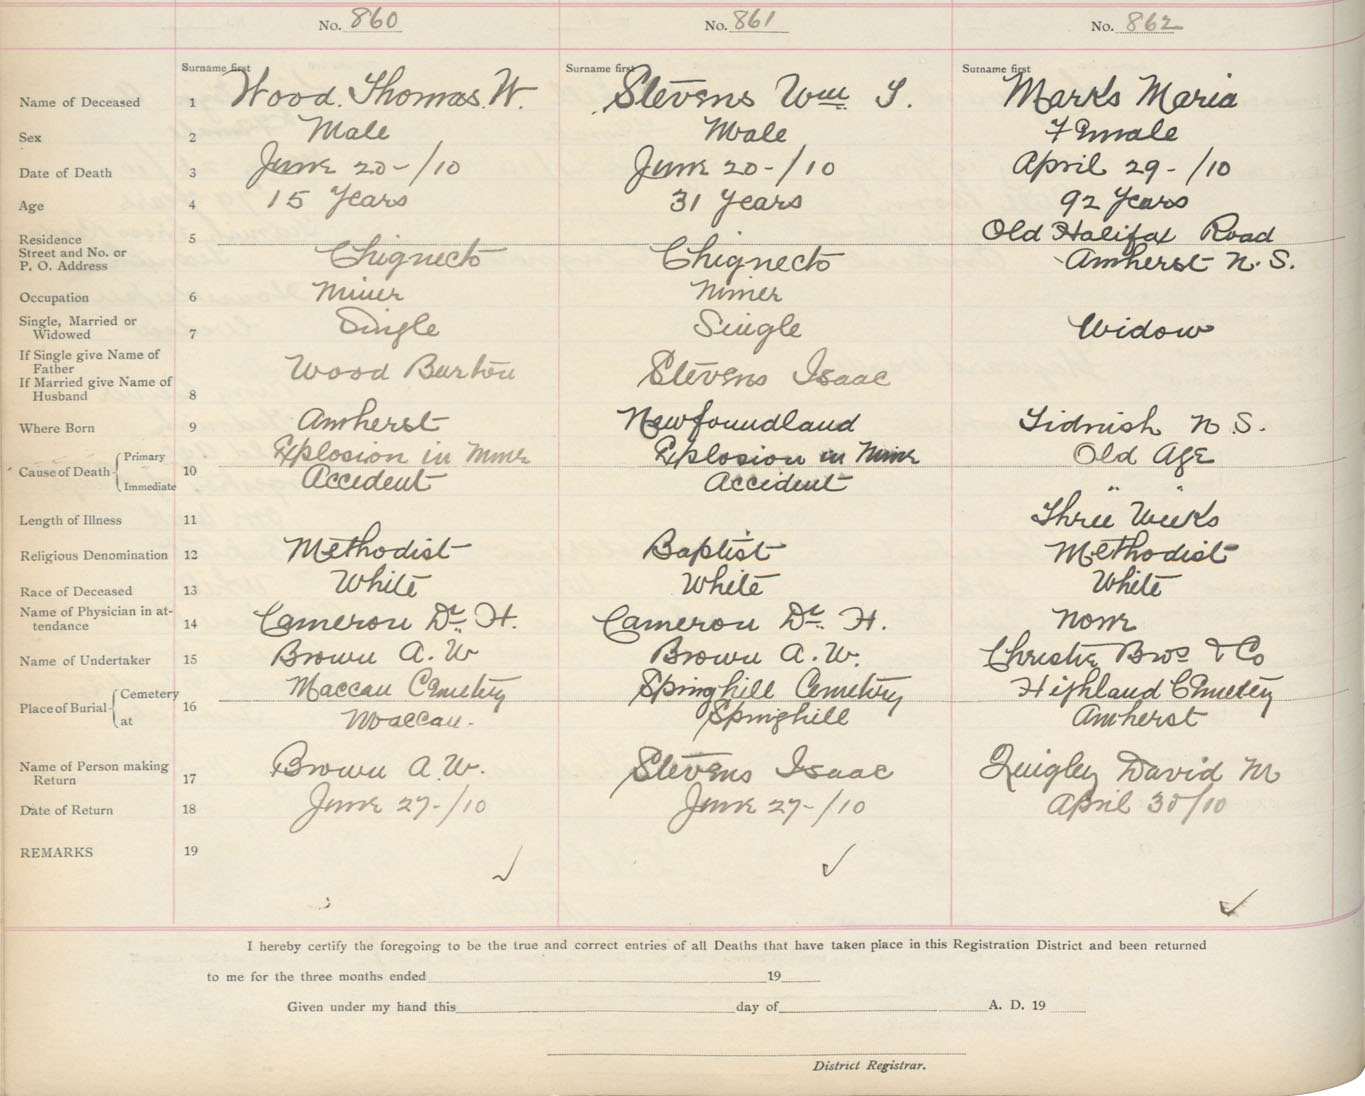 No. 860 No. 861 No. 862
Surname first Surname first Surname first
Name of Deceased 1 Wood. Thomas. W. Stevens Wm S. Marks Maria
Sex 2 Male Male Female
Date of Death 3 June 20-/10 June 20-/10 April 29-/10
Age 4 15 Years 31 Years 92 Years
Residence 5 Old Halifax Road
Street and No. or
P. O. Address Chignecto Chignecto Amherst N.S.
Occupation 6 Miner Miner
Single, Married or
Widowed 7 Single Single Widow
If Single give Name of
Father Wood Burton Stevens Isaac
If Married give Name of
Husband 8
Where Born 9 Amherst Newfoundland Tidnish N.S.
Cause of Death 10 Primary Explosion in Mine Explosion in Mine Old Age
Immediate Accident Accident " "
Length of Illness 11 Three Weeks
Religious Denomination 12 Methodist Baptist Methodist
Race of Deceased 13 White White White
Name of Physician in at-
tendance 14 Cameron Dr. H. Cameron Dr. H. None
Name of Undertaker 15 Brown A. W Brown A. W. Christie Bros & Co
Place of Burial 16 Cemetery Maccan Cemetery Springhill Cemetery Highland Cemetery
at Maccan. Springhill Amherst
Name of Person making
Return 17 Brown A. W. Stevens Isaac Quigley David M
Date of Return 18 June 27-/10 June 27-/10 April 30/10
REMARKS 19 ✓ ✓ ✓
I hereby certify the foregoing to be the true and correct entries of all Deaths that have taken place in this Registration District and been returned
to me for the three months ended 19
Given under my hand this day of A. D. 19
District Registrar.